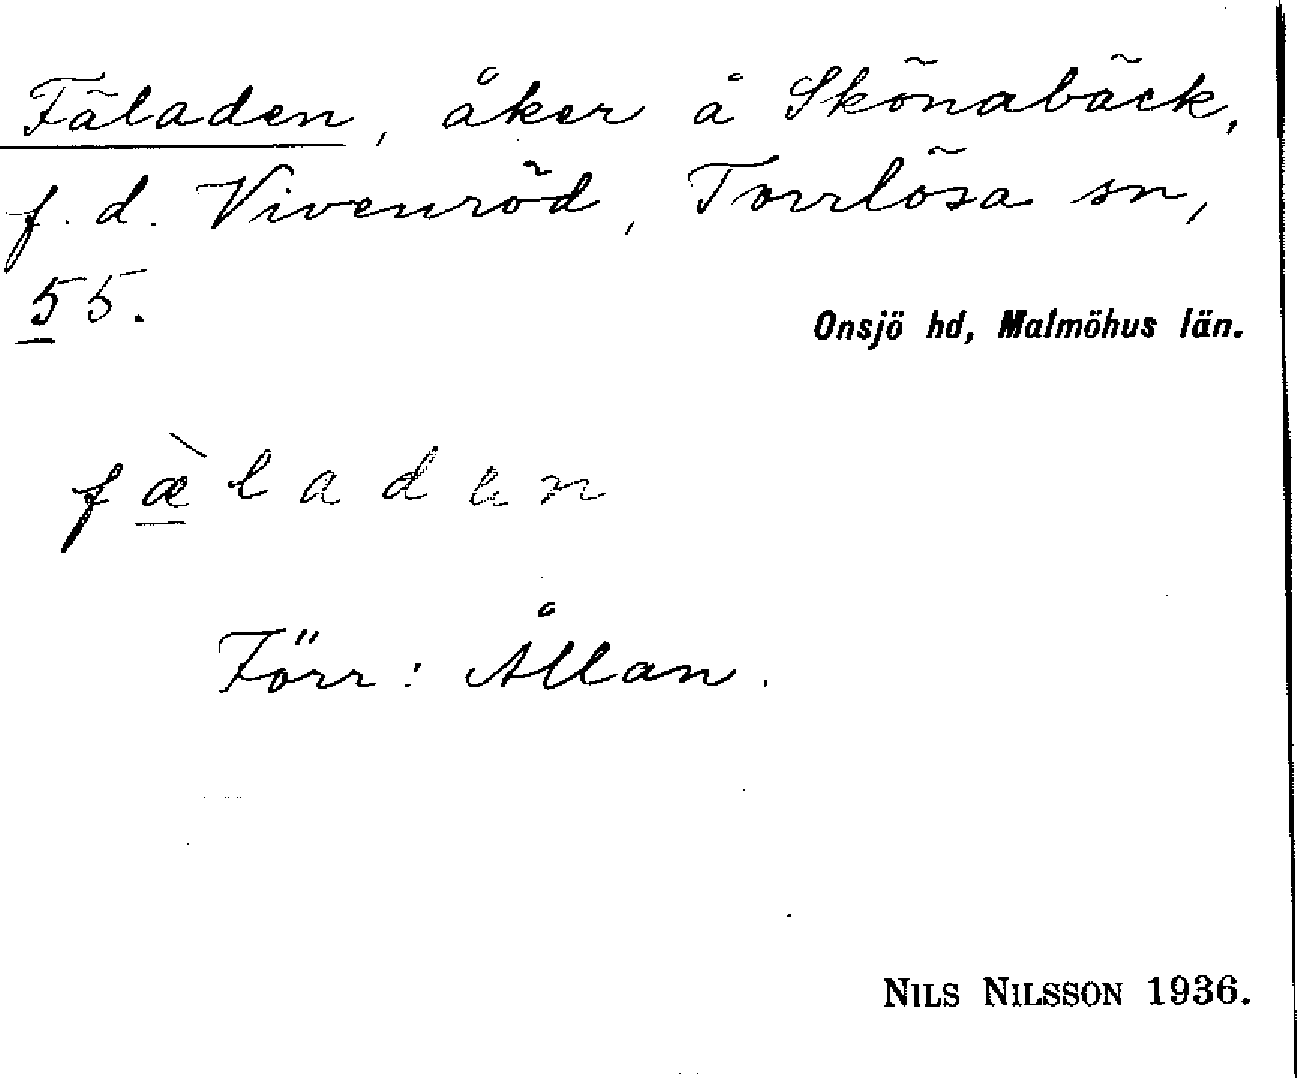 Fäladen, åker å Skönabäck,
f. d. Vivenröd, Torrlösa sn,
55.
Onsjö hd, Malmöhus län.
fæ̀laden
Förr: Ållan.
NILS NILSSON 1936.